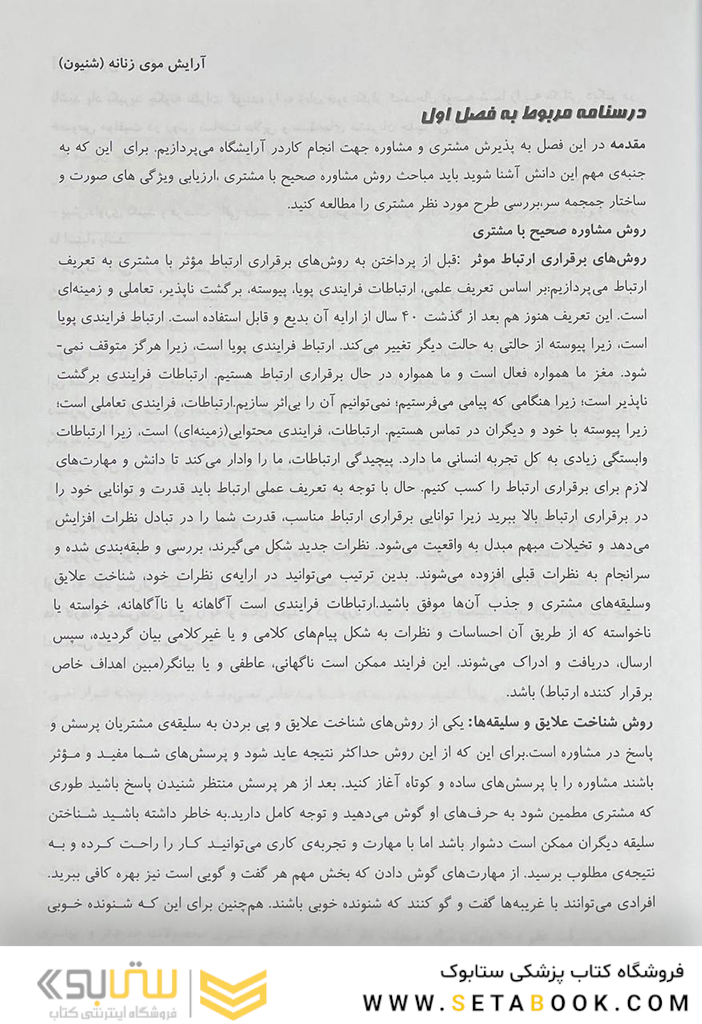 آرایش موی زنانه (شنیون)
درسنامه مربوط به فصل اول
مقدمه در این فصل به پذیرش مشتری و مشاوره جهت انجام کاردر آرایشگاه می‌پردازیم. برای این که به
جنبه‌ی مهم این دانش آشنا شوید باید مباحث روش مشاوره صحیح با مشتری ،ارزیابی ویژگی های صورت و
ساختار جمجمه سر،بررسی طرح مورد نظر مشتری را مطالعه کنید.
روش مشاوره صحیح با مشتری
روش‌های برقراری ارتباط موثر :قبل از پرداختن به روش‌های برقراری ارتباط مؤثر با مشتری به تعریف
ارتباط می‌پردازیم:بر اساس تعریف علمی، ارتباطات فرایندی پویا، پیوسته، برگشت ناپذیر، تعاملی و زمینه‌ای
است. این تعریف هنوز هم بعد از گذشت ۴۰ سال از ارایه آن بدیع و قابل استفاده است. ارتباط فرایندی پویا
است، زیرا پیوسته از حالتی به حالت دیگر تغییر می‌کند. ارتباط فرایندی پویا است، زیرا هرگز متوقف نمی-
شود. مغز ما همواره فعال است و ما همواره در حال برقراری ارتباط هستیم. ارتباطات فرایندی برگشت
ناپذیر است؛ زیرا هنگامی که پیامی می‌فرستیم؛ نمی‌توانیم آن را بی‌اثر سازیم.ارتباطات، فرایندی تعاملی است؛
زیرا پیوسته با خود و دیگران در تماس هستیم. ارتباطات، فرایندی محتوایی(زمینه‌ای) است، زیرا ارتباطات
وابستگی زیادی به کل تجربه انسانی ما دارد. پیچیدگی ارتباطات، ما را وادار می‌کند تا دانش و مهارت‌های
لازم برای برقراری ارتباط را کسب کنیم. حال با توجه به تعریف عملی ارتباط باید قدرت و توانایی خود را
در برقراری ارتباط بالا ببرید زیرا توانایی برقراری ارتباط مناسب، قدرت شما را در تبادل نظرات افزایش
می‌دهد و تخیلات مبهم مبدل به واقعیت می‌شود. نظرات جدید شکل می‌گیرند، بررسی و طبقه‌بندی شده و
سرانجام به نظرات قبلی افزوده می‌شوند. بدین ترتیب می‌توانید در ارایه‌ی نظرات خود، شناخت علایق
وسلیقه‌های مشتری و جذب آن‌ها موفق باشید.ارتباطات فرایندی است آگاهانه یا ناآگاهانه، خواسته یا
ناخواسته که از طریق آن احساسات و نظرات به شکل پیام‌های کلامی و یا غیرکلامی بیان گردیده، سپس
ارسال، دریافت و ادراک می‌شوند. این فرایند ممکن است ناگهانی، عاطفی و یا بیانگر(مبین اهداف خاص
برقرار کننده ارتباط) باشد.
روش شناخت علایق و سلیقه‌ها: یکی از روش‌های شناخت علایق و پی بردن به سلیقه‌ی مشتریان پرسش و
پاسخ در مشاوره است.برای این که از این روش حداکثر نتیجه عاید شود و پرسش‌های شما مفید و مؤثر
باشند مشاوره را با پرسش‌های ساده و کوتاه آغاز کنید. بعد از هر پرسش منتظر شنیدن پاسخ باشید طوری
که مشتری مطمین شود به حرف‌های او گوش می‌دهید و توجه کامل دارید.به خاطر داشته باشید شناختن
سلیقه دیگران ممکن است دشوار باشد اما با مهارت و تجربه‌ی کاری می‌توانید کار را راحت کرده و به
نتیجه‌ی مطلوب برسید. از مهارت‌های گوش دادن که بخش مهم هر گفت و گویی است نیز بهره کافی ببرید.
افرادی می‌توانند با غریبه‌ها گفت و گو کنند که شنونده خوبی باشند. هم‌چنین برای این که شنونده خوبی
فروشگاه کتاب پزشکی ستابوک
WWW.SETABOOK.COM
ستابوک
فروشگاه اینترنتی کتاب